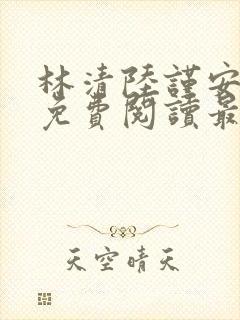 林清陸謹安
免費閱讀最
天空晴天